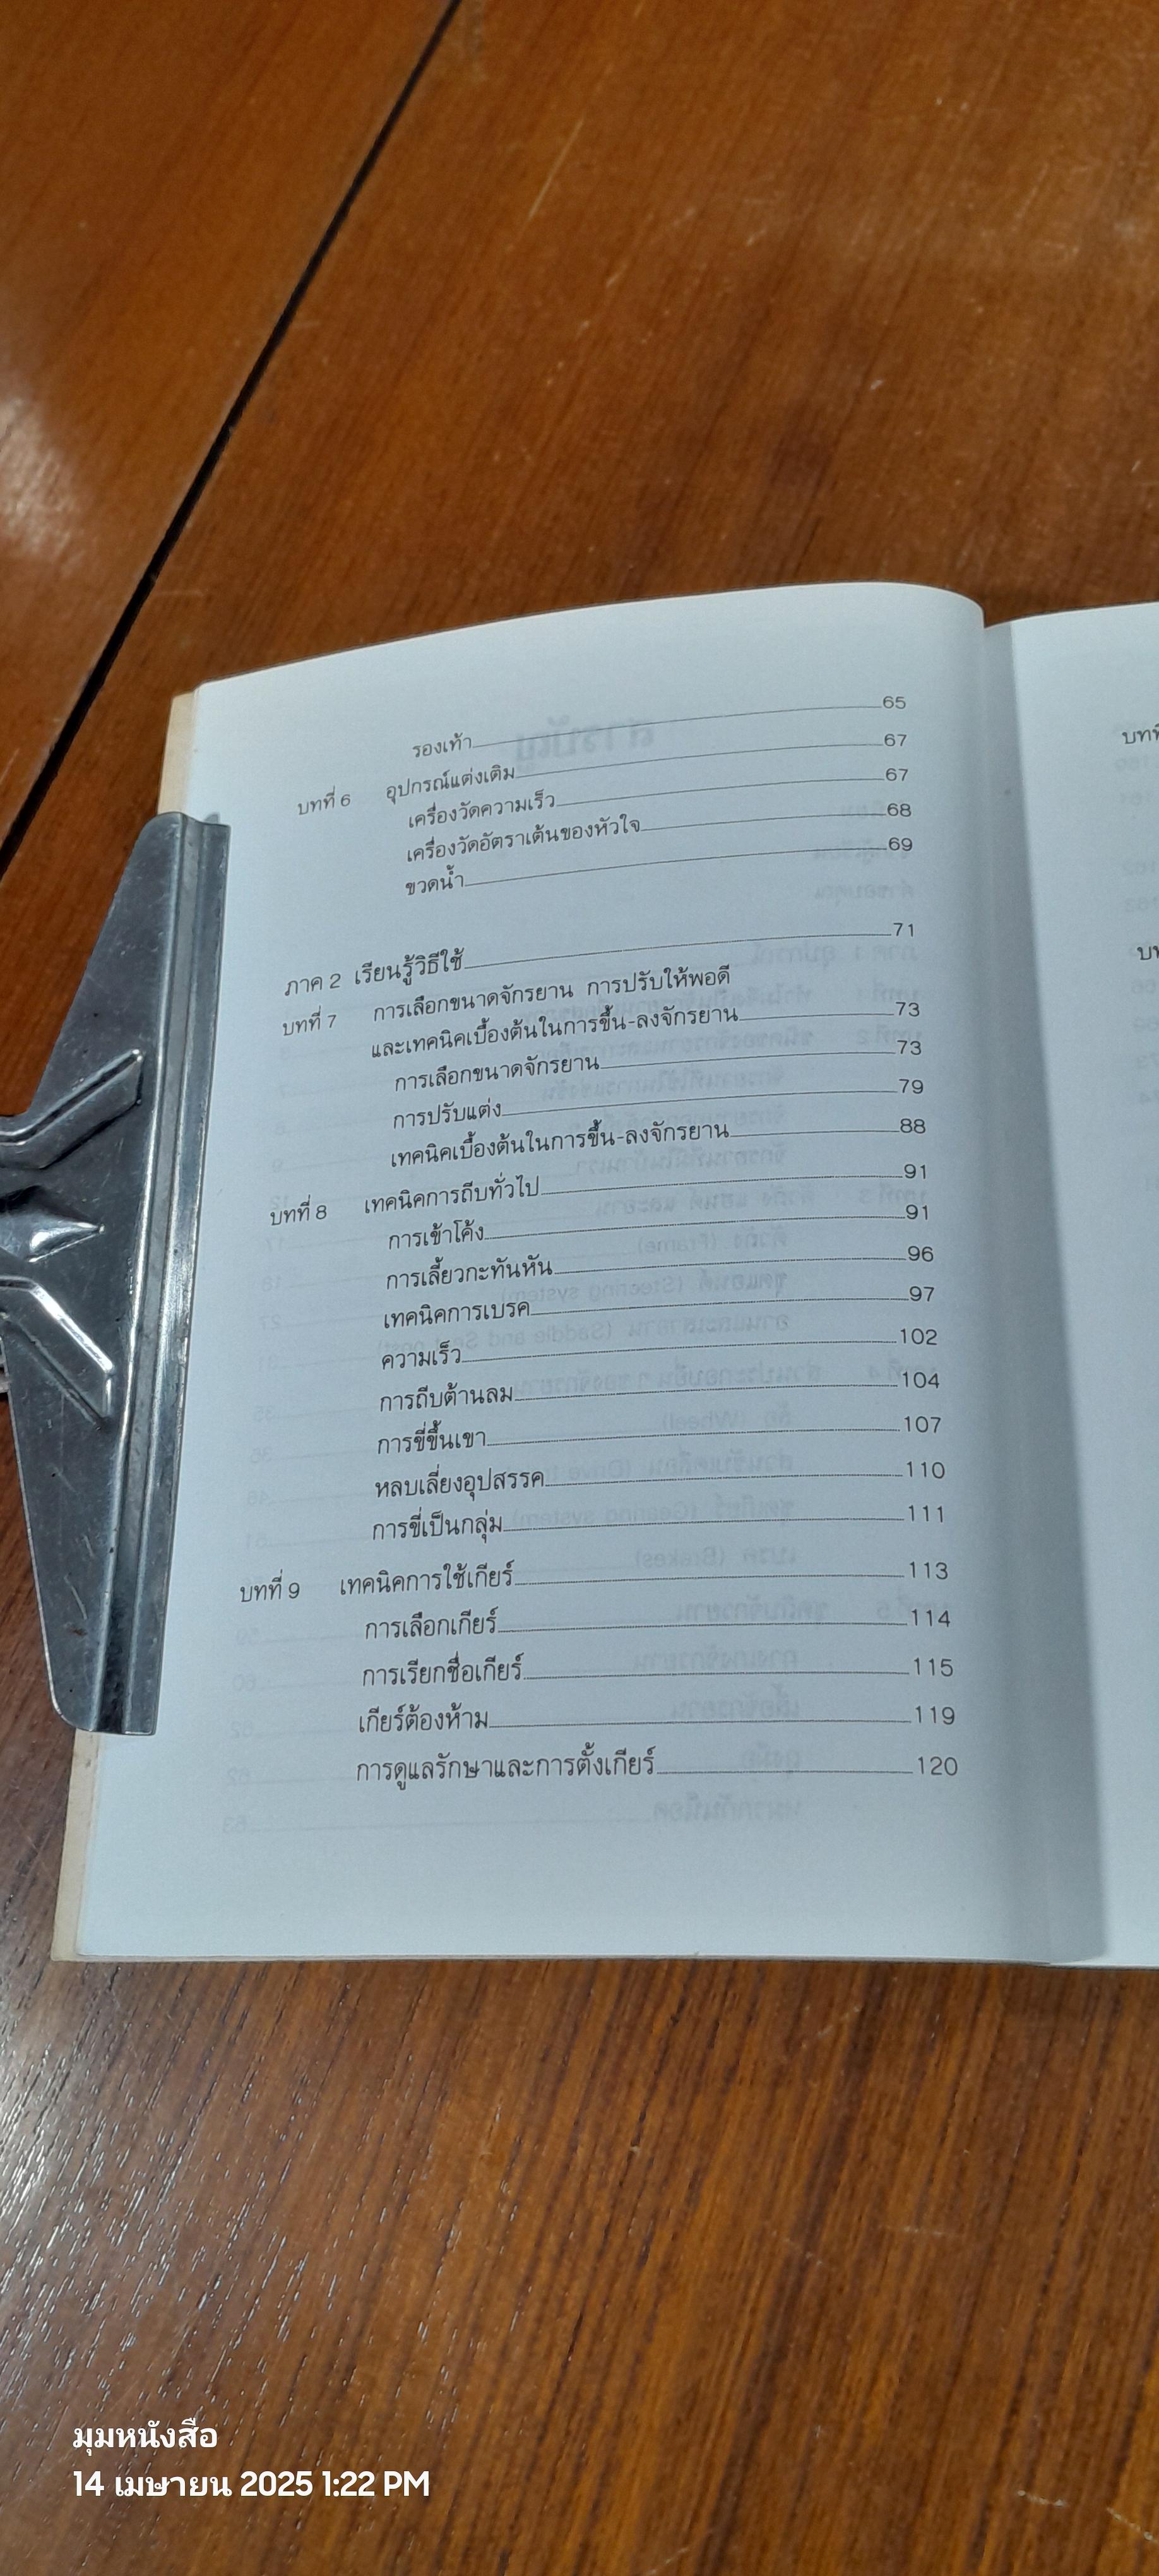 รองเท้า 65
บทที่ 6 อุปกรณ์แต่งเติม 67
เครื่องวัดความเร็ว 67
เครื่องวัดอัตราเต้นของหัวใจ 68
ขวดน้ำ 69
ภาค 2 เรียนรู้วิธีใช้ 71
บทที่ 7 การเลือกขนาดจักรยาน การปรับให้พอดี
และเทคนิคเบื้องต้นในการขึ้น-ลงจักรยาน 73
การเลือกขนาดจักรยาน 73
การปรับแต่ง 79
เทคนิคเบื้องต้นในการขึ้น-ลงจักรยาน 88
บทที่ 8 เทคนิคการถีบทั่วไป 91
การเข้าโค้ง 91
การเลี้ยวกะทันหัน 96
เทคนิคการเบรค 97
ความเร็ว 102
การถีบต้านลม 104
การขี่ขึ้นเขา 107
หลบเลี่ยงอุปสรรค 110
การขี่เป็นกลุ่ม 111
บทที่ 9 เทคนิคการใช้เกียร์ 113
การเลือกเกียร์ 114
การเรียกชื่อเกียร์ 115
เกียร์ต้องห้าม 119
การดูแลรักษาและการตั้งเกียร์ 120
มุมหนังสือ
14 เมษายน 2025 1:22 PM